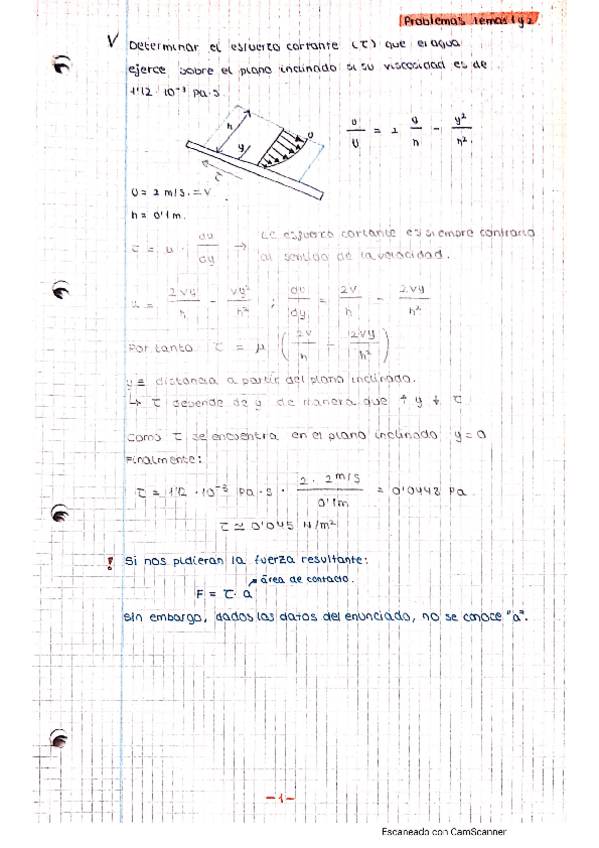 Problemas temas 1 y 2
V Determinar el esfuerzo cortante (τ) que el agua
ejerce sobre el plano inclinado si su viscosidad es de
1'12 · 10⁻³ Pa·s
h
y
U
u/U = 2 y/h - y²/h².
U = 2 m/s. = V
h = 0'1m.
τ = μ · du/dy → esfuerzo cortante es siempre contrario
al sentido de la velocidad.
u = 2Vy/h - Vy²/h² ; du/dy = 2V/h - 2Vy/h²
Por tanto τ = μ (2V/h - 2Vy/h²)
y = distancia a partir del plano inclinado.
↳ τ depende de y de manera que ↑ y ↓ τ
Como τ se encuentra en el plano inclinado y = 0
Finalmente:
τ = 1'12 · 10⁻³ Pa·s · 2 · 2m/s / 0'1m = 0'0448 Pa
τ ≃ 0'045 N/m²
! Si nos pidieran la fuerza resultante:
↗ área de contacto.
F = τ · a
Sin embargo, dados los datos del enunciado, no se conoce "a".
-1-
Escaneado con CamScanner